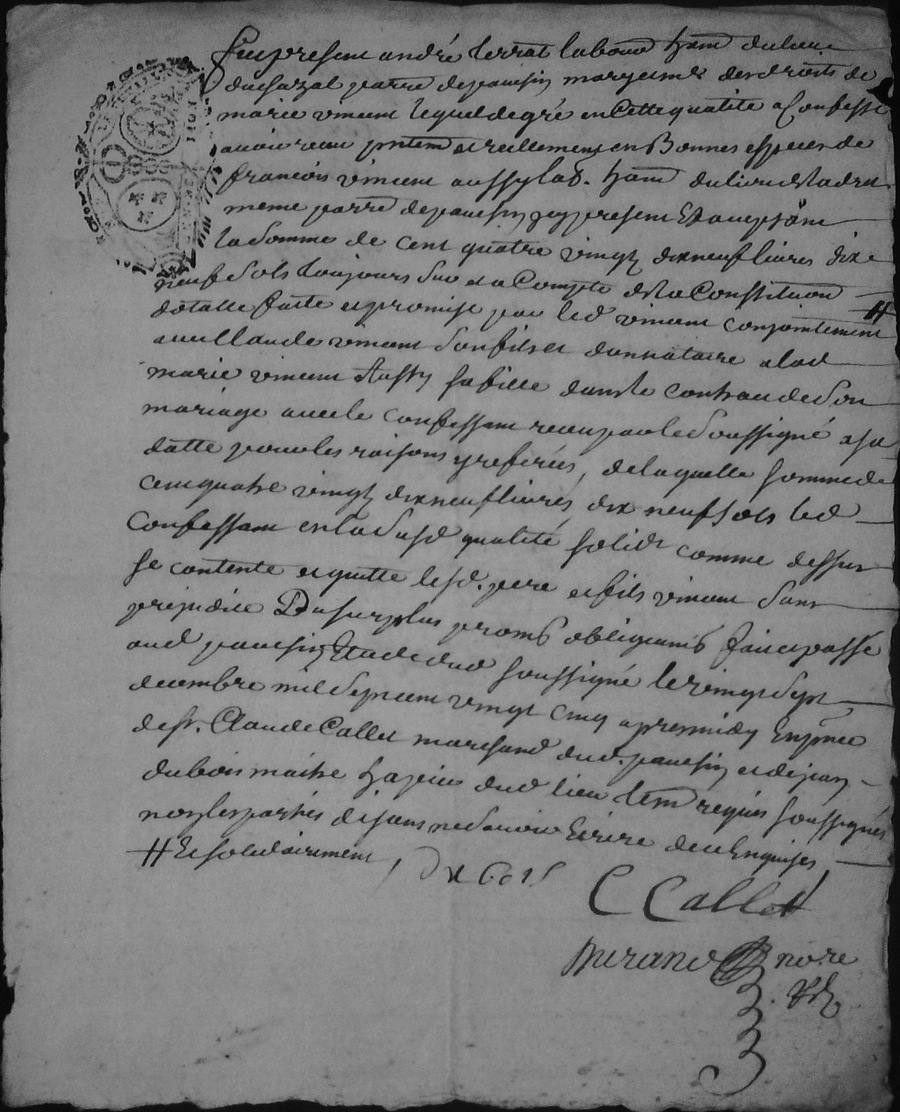 fut present andré terrat labour habn du lieu
du chazal parre de pausin mary et me des droits de
marie vincent lequel de gré en cette qualité a confessé
avoir receu pntem et reellement en bonnes especes de
francois vincent aussy lab. habn du lieu de
meme parre de pausin y present et acceptant
la somme de cent quatre vingt dix neuf livres dix
neuf sols toujours sur et a compte de la constitution
dotalle faite et promise par led vincent conjointement #
avec Claude vincent son fils et donnataire a lad
marie vincent aussy sa fille dans le contrat de son
mariage avec le confessant receu par le soussigné a sa
datte pour les raisons y referées, de laquelle somme de
cent quatre vingt dix neuf livres dix neuf sols led
confessant en la susd qualité solidt comme dessus
se contente et quitte lesd. pere et fils vincent sans
prejudice du surplus promis obligeants fait et passé
aud pausin etude dud soussigné le vingt sept
decembre mil sept cent vingt cinq apres midy en pnce
de sr. Claude Callet marchand dud. pausin et de jean
dubois maitre dud lieu tem requis soussignés
non les parties disant ne savoir ecrire de ce enquises
# et solidairement / Dubois
C Callet
Durand nore